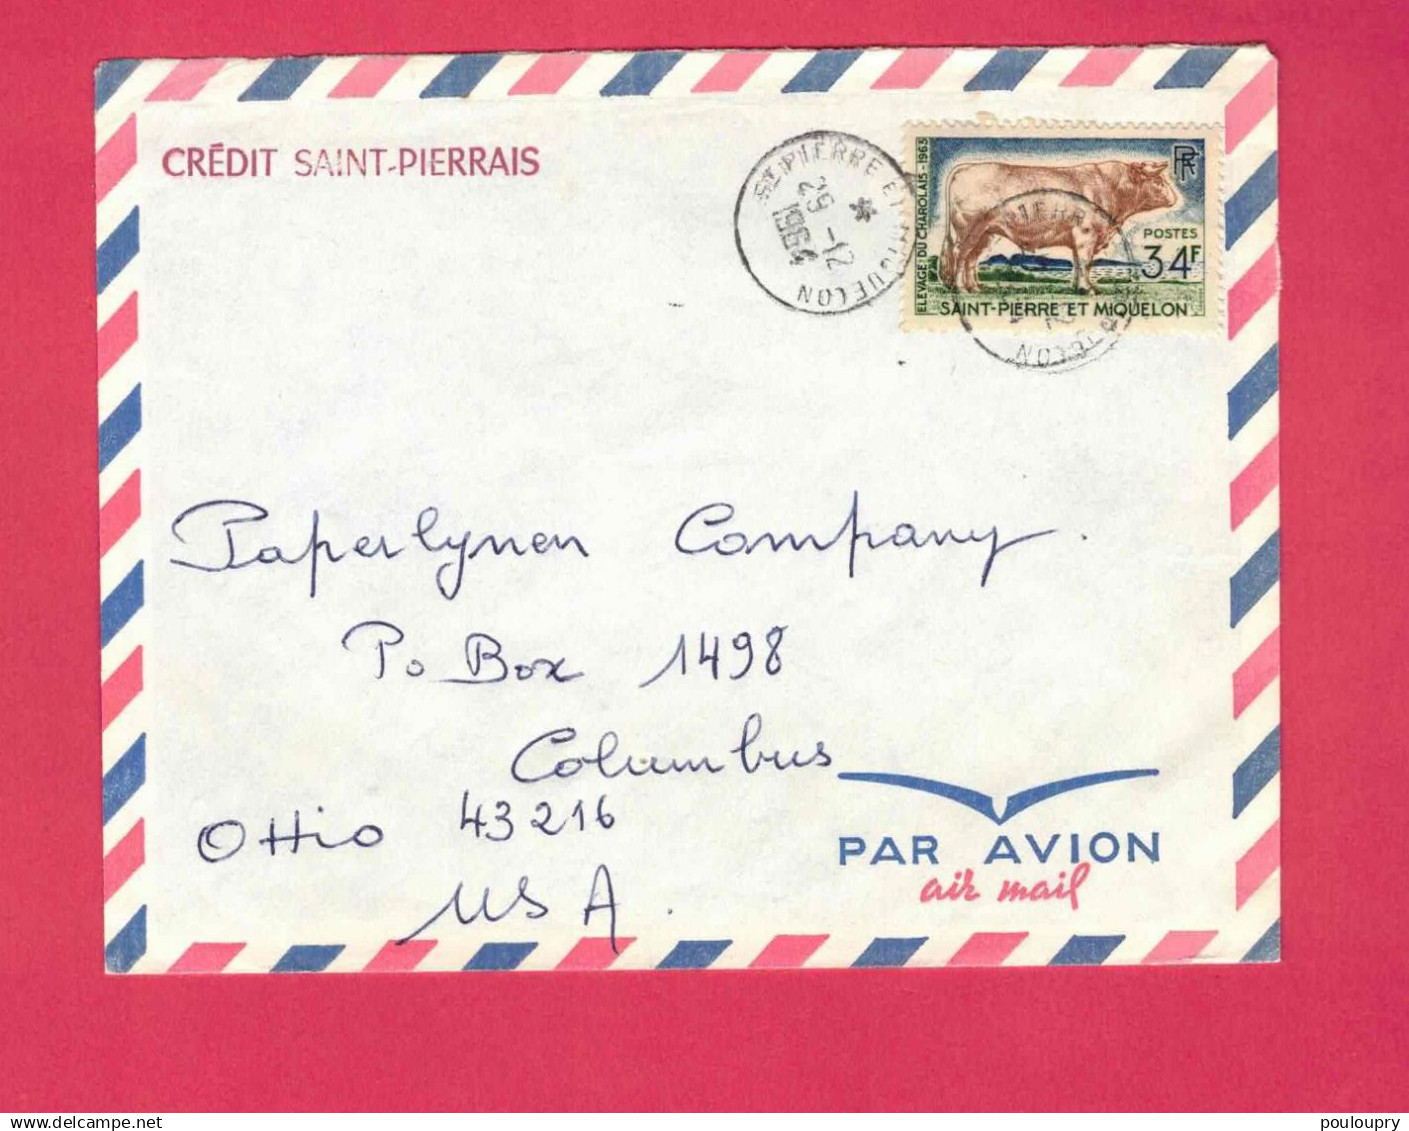 CRÉDIT SAINT-PIERRAIS
ST PIERRE ET MIQUELON
29 -12
1964
ELEVAGE DU CHAROLAIS - 1963
RF
POSTES
34F
SAINT-PIERRE ET MIQUELON
Paperlynen Company.
Po Box 1498
Columbus
OHio 43216
USA.
PAR AVION
air mail
pouloupry